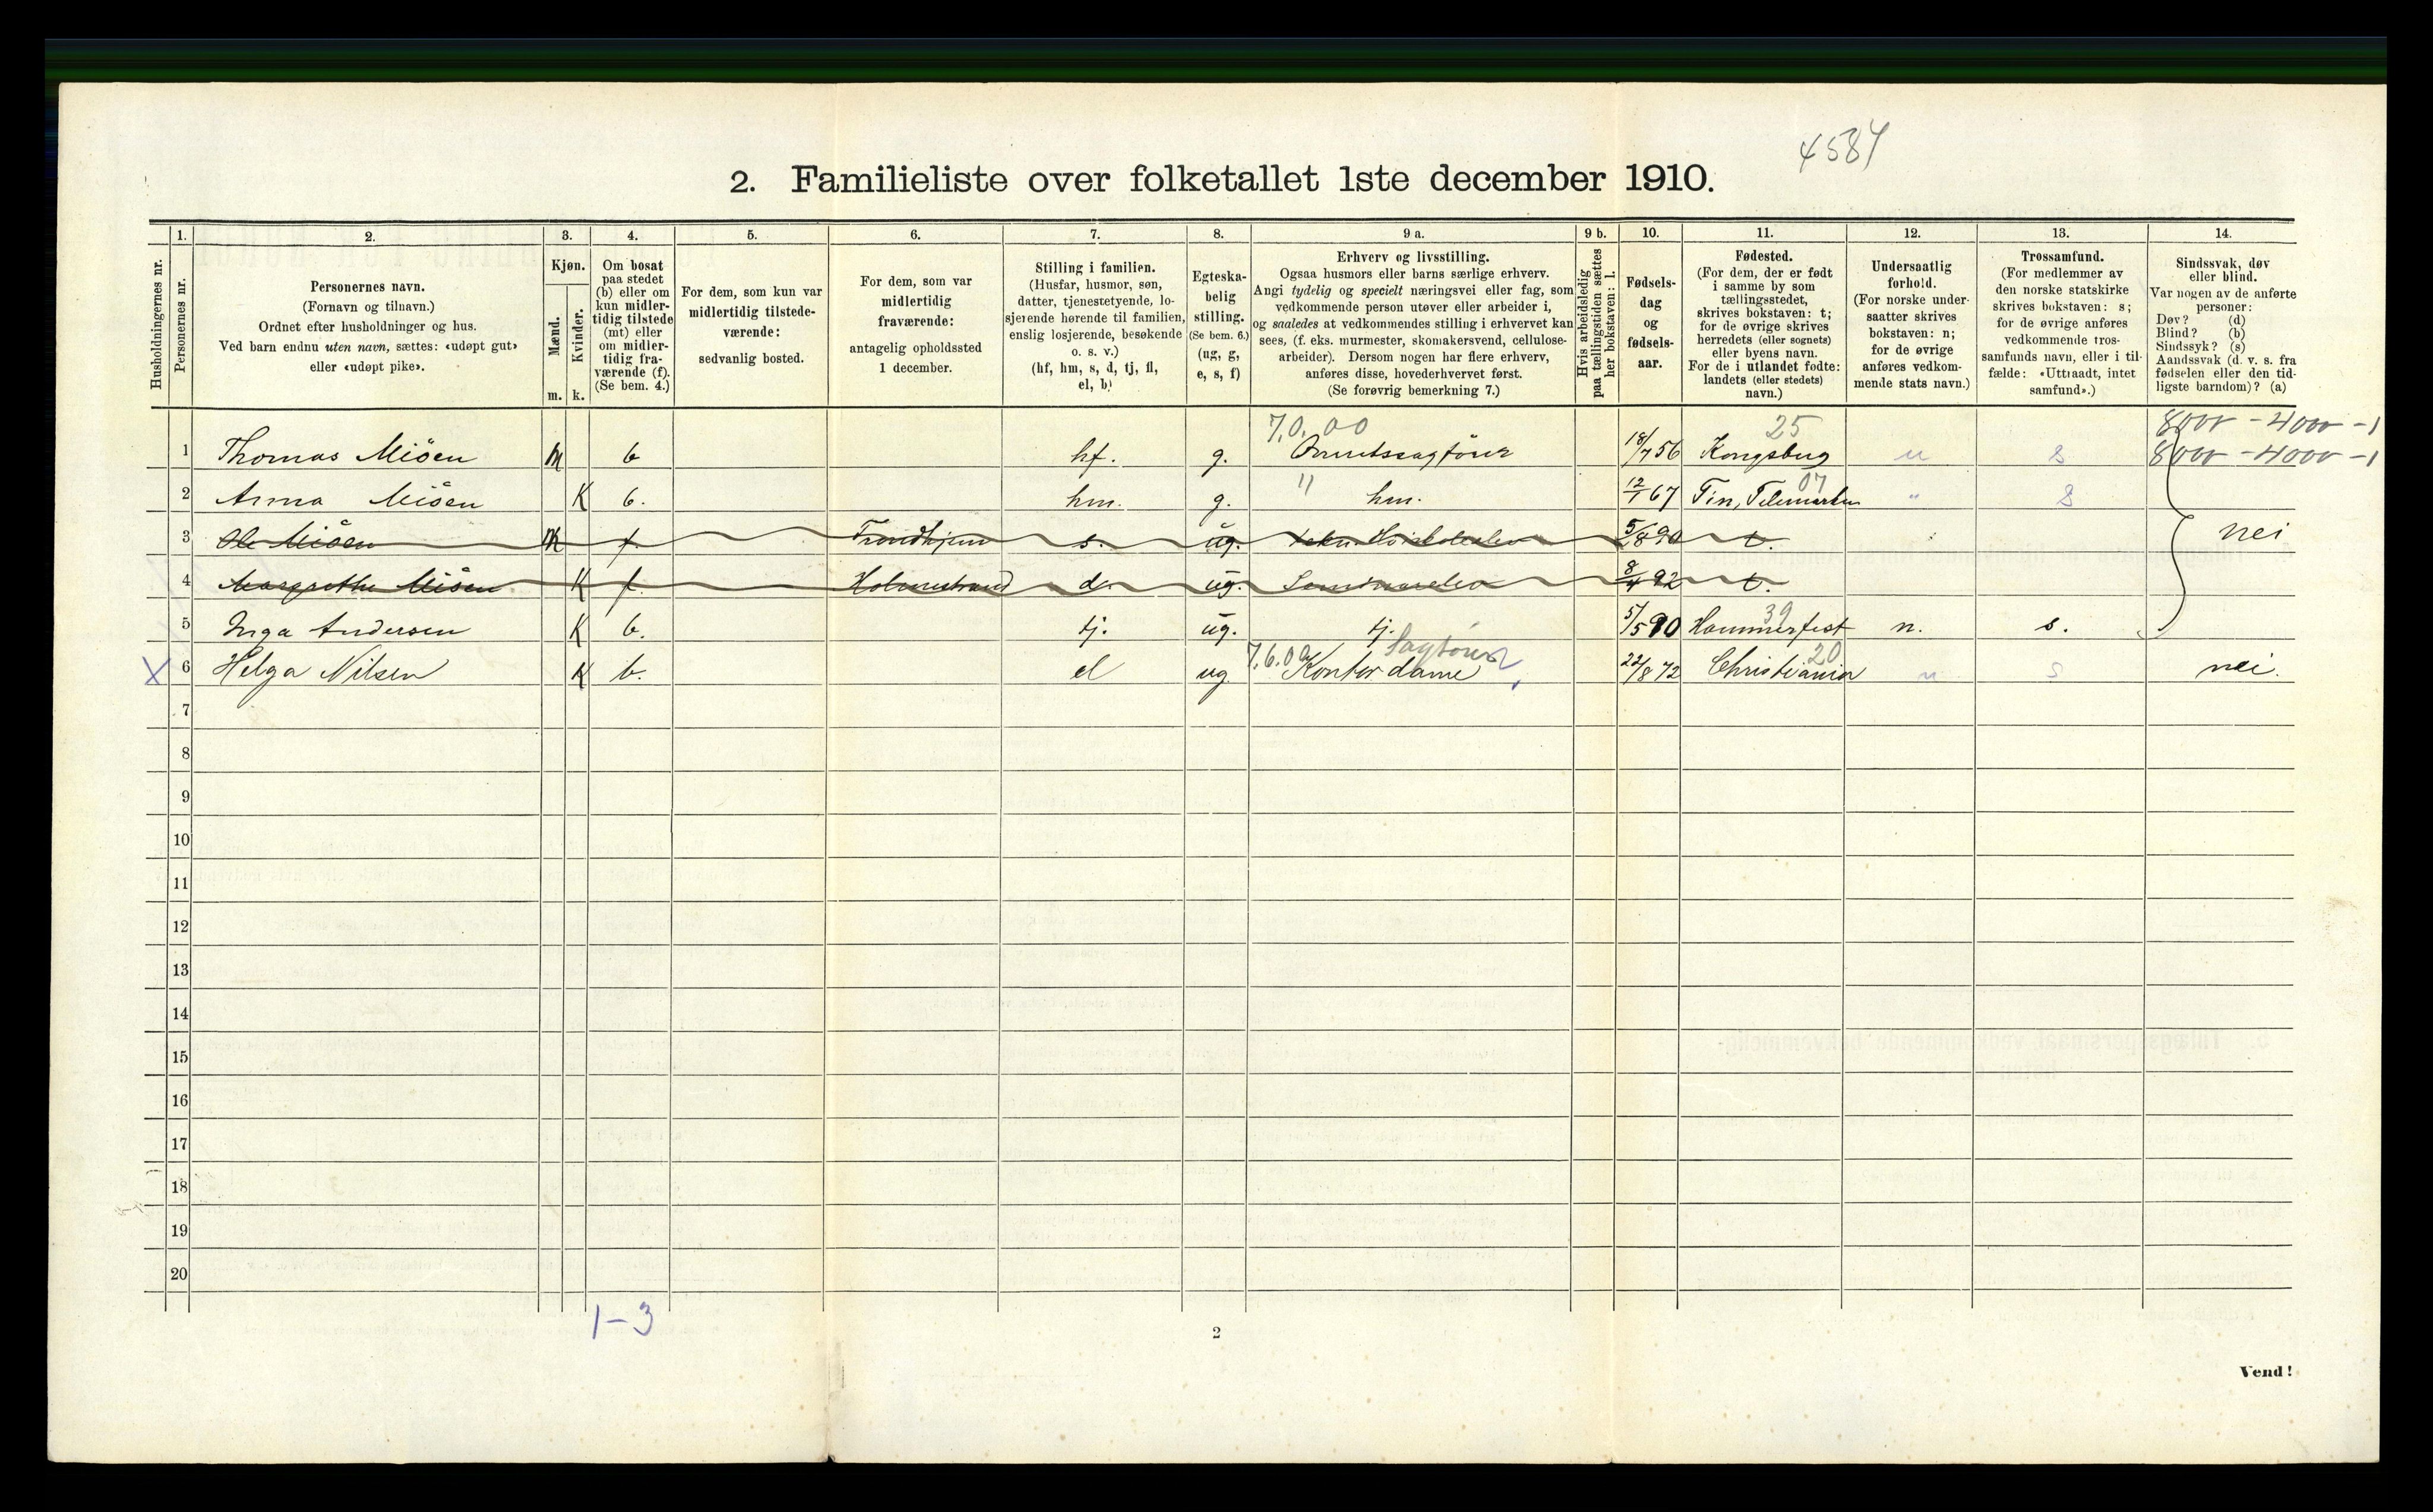 4584
2. Familieliste over folketallet 1ste december 1910.
Husholdningernes nr.
1.
Personernes nr.
2.
Personernes navn.
(Fornavn og tilnavn.)
Ordnet efter husholdninger og hus.
Ved barn endnu uten navn, sættes: «udøpt gut»
eller «udøpt pike».
3.
Kjøn.
Mænd.
Kvinder.
m. k.
4.
Om bosat
paa stedet
(b) eller om
kun midler-
tidig tilstede
(mt) eller
om midler-
tidig fra-
værende (f).
(Se bem. 4.)
5.
For dem, som kun var
midlertidig tilstede-
værende:
sedvanlig bosted.
6.
For dem, som var
midlertidig
fraværende:
antagelig opholdssted
1 december.
7.
Stilling i familien.
(Husfar, husmor, søn,
datter, tjenestetyende, lo-
sjerende hørende til familien,
enslig losjerende, besøkende
o. s. v.)
(hf, hm, s, d, tj, fl,
el, b)
8.
Egteska-
belig
stilling.
(Se bem. 6.)
(ug, g,
e, s, f)
9 a.
Erhverv og livsstilling.
Ogsaa husmors eller barns særlige erhverv.
Angi tydelig og specielt næringsvei eller fag, som
vedkommende person utøver eller arbeider i,
og saaledes at vedkommendes stilling i erhvervet kan
sees, (f. eks. murmester, skomakersvend, cellulose-
arbeider). Dersom nogen har flere erhverv,
anføres disse, hovederhvervet først.
(Se forøvrig bemerkning 7.)
9 b.
Hvis arbeidsledig
paa tællingstiden sættes
her bokstaven: l.
10.
Fødsels-
dag
og
fødsels-
aar.
11.
Fødested.
(For dem, der er født
i samme by som
tællingsstedet,
skrives bokstaven: t;
for de øvrige skrives
herredets (eller sognets)
eller byens navn.
For de i utlandet fødte:
landets (eller stedets)
navn.)
12.
Undersaatlig
forhold.
(For norske under-
saatter skrives
bokstaven: n;
for de øvrige
anføres vedkom-
mende stats navn.)
13.
Trossamfund.
(For medlemmer av
den norske statskirke
skrives bokstaven: s;
for de øvrige anføres
vedkommende tros-
samfunds navn, eller i til-
fælde: «Uttraadt, intet
samfund».)
14.
Sindssvak, døv
eller blind.
Var nogen av de anførte
personer:
Døv? (d)
Blind? (b)
Sindssyk? (s)
Aandssvak (d. v. s. fra
fødselen eller den tid-
ligste barndom)? (a)
7.0.00 25 8000 - 4000 - 1
1 Thomas Miöen m b hf. g. 18/7 56 Kongsberg n s 8000 - 4000 - 1
2 Anna Miöen K b. hm. g. " hm. 12/1 67 Tin, Telemarken 07 " s
3 Ole Miöen m f. Trondhjem s. ug. 5/8 90 t. nei
4 Margrethe Miöen K f. Holmestrand d. ug. 8/4 92 t.
5 Inga Andersen K b. tj. ug. tj. 5/5 90 Hammerfest 39 n. s.
X 6 Helga Nilsen K b. el ug 7.6.00 Kontordame Sagförer 22/8 72 Christiania 20 n s nei.
7
8
9
10
11
12
13
14
15
16
17
18
19
20
1-3
2
Vend!